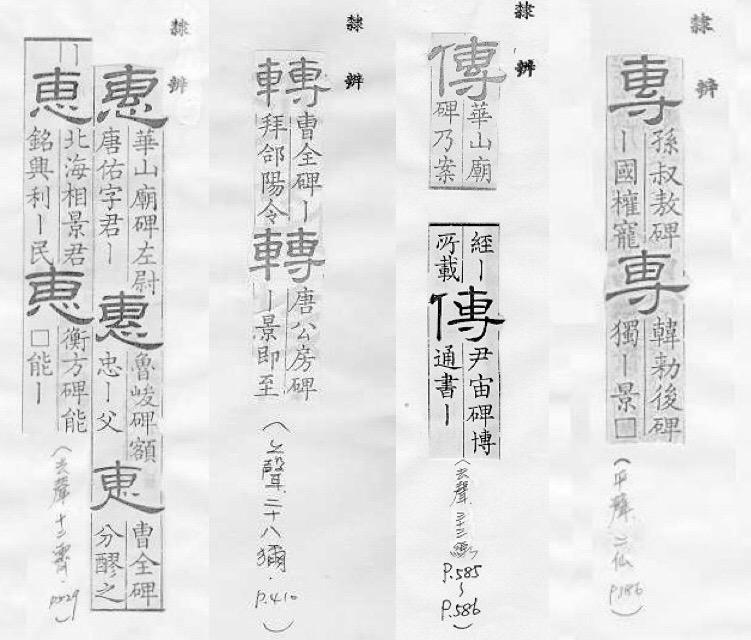 隸辨
專
孫叔敖碑
｜國權寵
專
韓勑後碑
獨｜景□
(平聲.二仙 P.186)
隸辨
傳
華山廟
碑乃案
經｜
所載
傳
尹宙碑博
通書｜
(去聲.三十三線 P.585~P.586)
隸辨
轉
曹全碑｜
拜郃陽令
轉
唐公房碑
｜景即至
(上聲.二十八獮. P.410)
隸辨
惠
華山廟碑左尉
唐佑字君｜
惠
魯峻碑額
忠｜父
惠
曹全碑
分醪之
｜
惠
北海相景君
銘興利｜民
惠
衡方碑能
□能｜
(去聲十二霽. P.529)